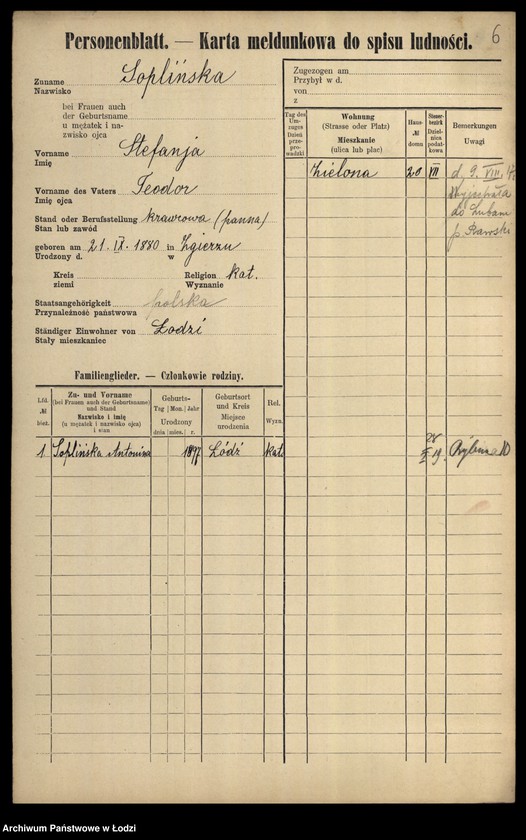 6
Personenblatt. — Karta meldunkowa do spisu ludności.
Zuname Soplińska
Nazwisko
bei Frauen auch
der Geburtsname
u mężatek i na-
zwisko ojca
Vorname Stefanja
Imię
Vorname des Vaters Teodor
Imię ojca
Stand oder Berufsstellung krawcowa (panna)
Stan lub zawód
geboren am 21. IX. 1880 in Zgierzu
Urodzony d. w
Kreis Religion kat.
ziemi Wyznanie
Staatsangehörigkeit polska
Przynależność państwowa
Ständiger Einwohner von Łodzi
Stały mieszkaniec
Familienglieder. — Członkowie rodziny.
Lfd. № bież.
Zu- und Vorname
(bei Frauen auch der Geburtsname)
und Stand
Nazwisko i imię
(u mężatek i nazwisko ojca)
i stan
Geburts-
Tag | Mon. | Jahr
Urodzony
dnia | mies. | r.
Geburtsort
und Kreis
Miejsce
urodzenia
Rel.
Wyzn.
1 Soplińska Antonina 1897 Łódź kat.
Zugezogen am
Przybył w d.
von
z
Tag des
Um-
zuges
Dzień
prze-
prowadzki
Wohnung
(Strasse oder Platz)
Mieszkanie
(ulica lub plac)
Haus-
№
domu
Steuer-
bezirk
Dziel-
nica
podat-
kowa
Bemerkungen
Uwagi
Zielona 20 VII d. 9. VIII. 17.
Wyjechała
do Lubani
p. Rawski
Archiwum Państwowe w Łodzi